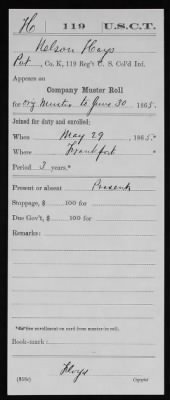 H | 119 | U.S.C.T.
Nelson Hays
Pvt, Co. K, 119 Reg't U. S. Col'd Inf.
Appears on
Company Muster Roll
for org muster to June 30, 1865.
Joined for duty and enrolled:
When May 29, 1865.*
Where Frankfort
Period 3 years.*
Present or absent Present
Stoppage, $ 100 for
Due Gov't, $ 100 for
Remarks:
*See enrollment on card from muster-in roll.
Book-mark:
Copyist.